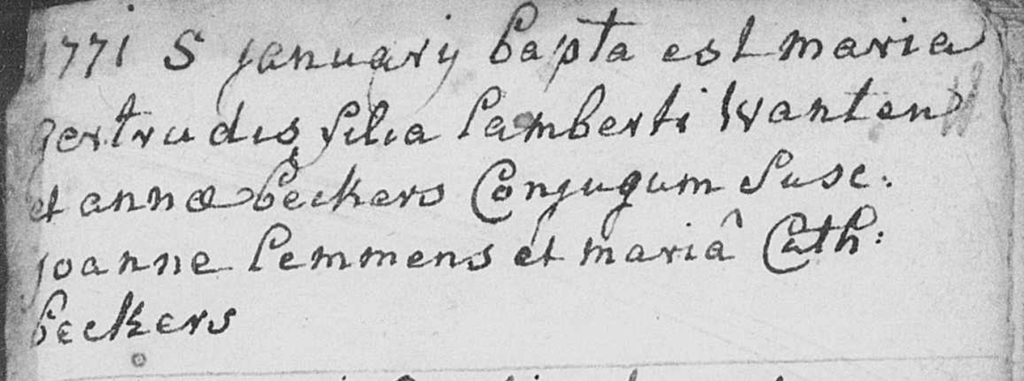 1771 5 january bapta est maria
gertrudis filia lamberti Wanten
et annæ beckers Conjugum Susc:
joanne lemmens et mariâ Cath:
beckers